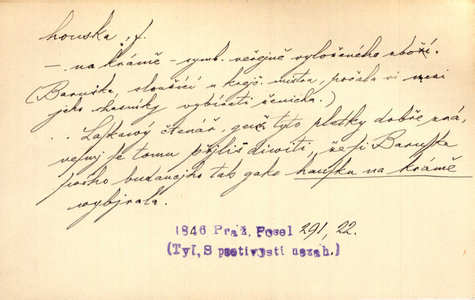 houska, f.
— na krámě - symb. veřejně vyloženého zboží.
(Baruška, sloužící u krejč. mistra, počala si mezi
jeho chasníky vybírati ženicha.)
.. Laskawý čtenář, genž tyto pletky dobře zná,
negmě se tomu přjliš diwiti, že si Baruška
swého budaucjho tak gako hauska na krámě
wybjrala.
1846 Praž. Posel 291, 22.
(Tyl, S poctivostí nezah.)